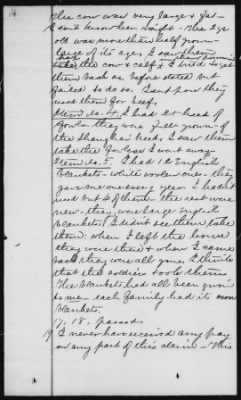 14
The cow was very large & fat-
I don't know her weight - The 2 yr
old was more than half grown
large of its age, I saw them
take the cow & calf & I tried to get
them back as before stated but
failed to do so. I suppose they
used them for beef.
Item No. 4. I had 20 head of
fowls - they were full grown of
the Shanghai breed. I saw them
take the fowls & went away
Item No. 5. I had 12 English
blankets - white woolen ones - they
gave me one every year. I hadnt
used but 4 of them - the rest were
new - they were large English
blankets, I didn't see them take
them. When I left the house
they were there & when I came
back they were all gone. I think
that the soldiers took them.
The blankets had all been given
to me - each family had its own
blankets.
17. 18. passed
19 I never have received any pay
on any part of this claim - This